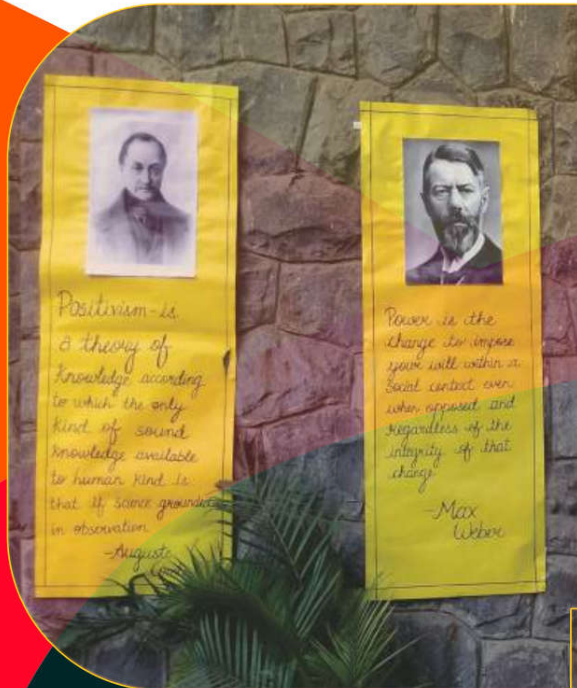 Positivism-is
a theory of
Knowledge according
to which the only
kind of sound
knowledge available
to human kind is
that if science grounded
in observation
-Auguste
Power is the
change to impose
your will within a
Social context even
when opposed and
regardless of the
integrity of that
change
-Max
Weber